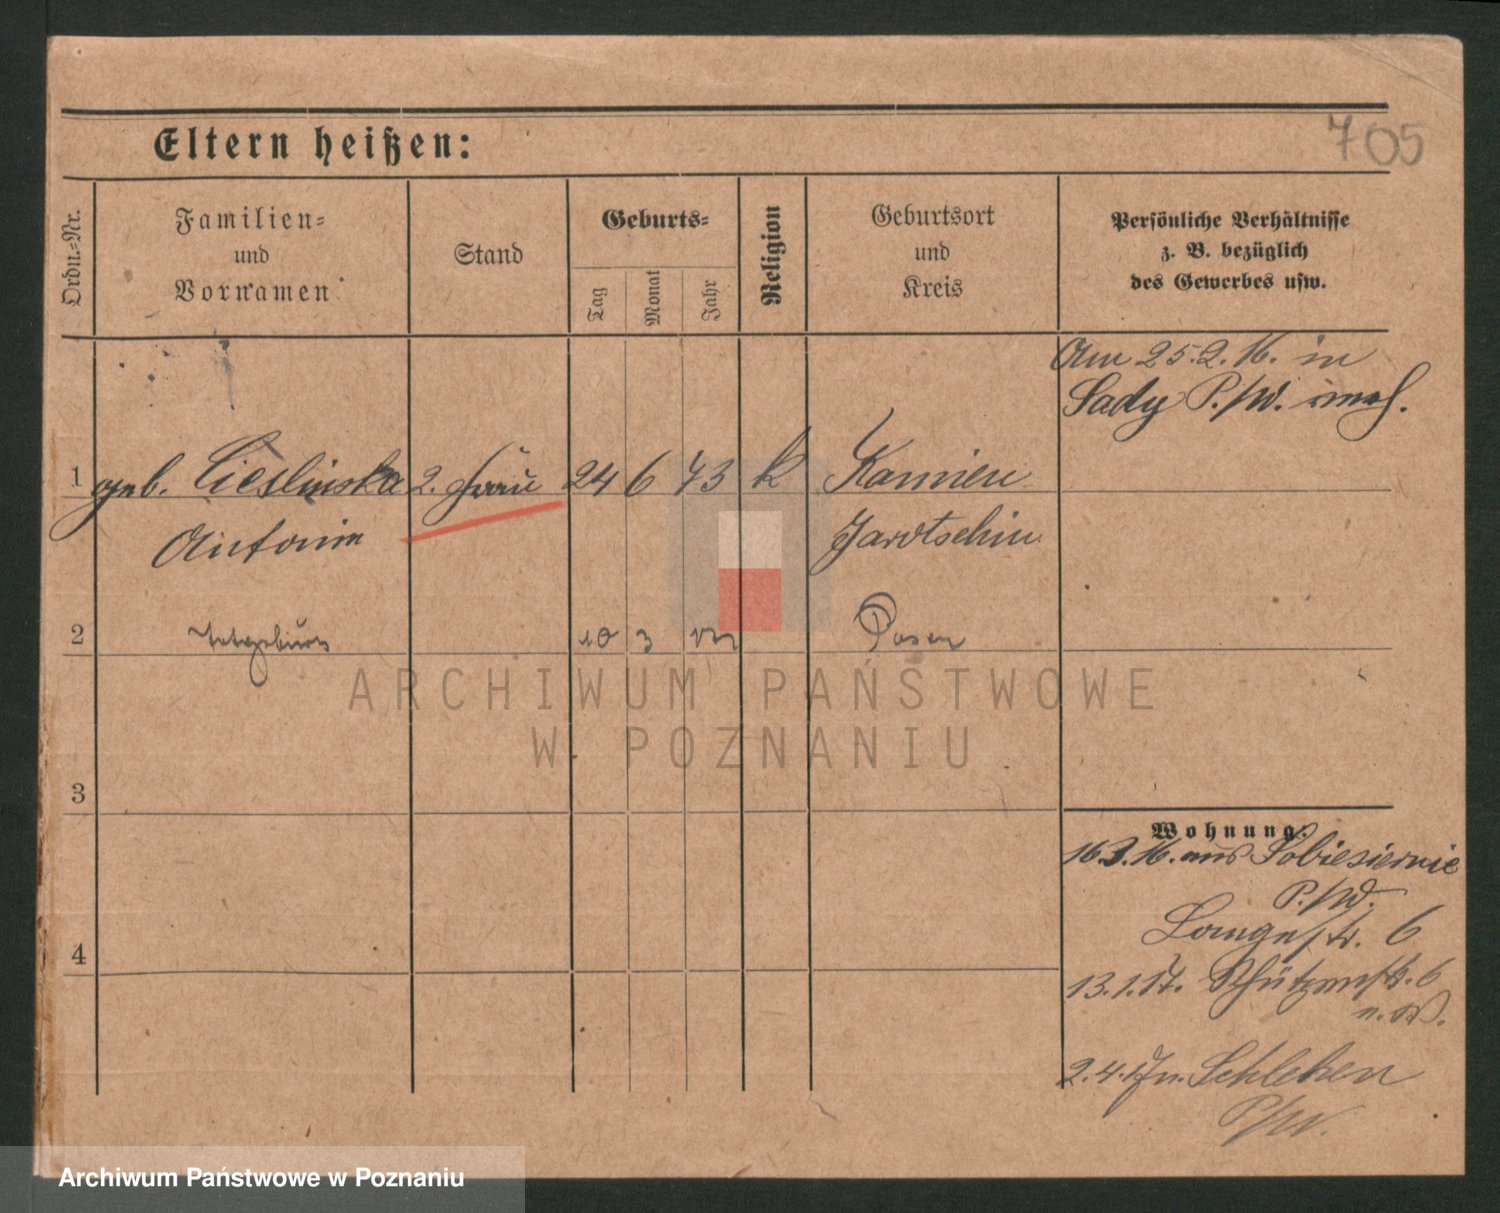 Eltern heißen:
705
Ordn.=Nr.
Familien=
und
Vornamen
Stand
Geburts=
Tag
Monat
Jahr
Religion
Geburtsort
und
Kreis
Persönliche Verhältnisse
z. B. bezüglich
des Gewerbes usw.
Am 25.2.16. in
Sady P./W. verh.
1 geb. Cieslinska 2. Frau 24 6 73 k Kamien
Antonie Jarotschin
2 Totgeburt 10 3 Posen
3
4
Wohnung:
16.3.16. aus Sobiesiernie
P./W.
Langestr. 6
13.1.17. Schützenstr. 6
2.4.17 n. Schlehen
P/W.
ARCHIWUM PAŃSTWOWE
W POZNANIU
Archiwum Państwowe w Poznaniu